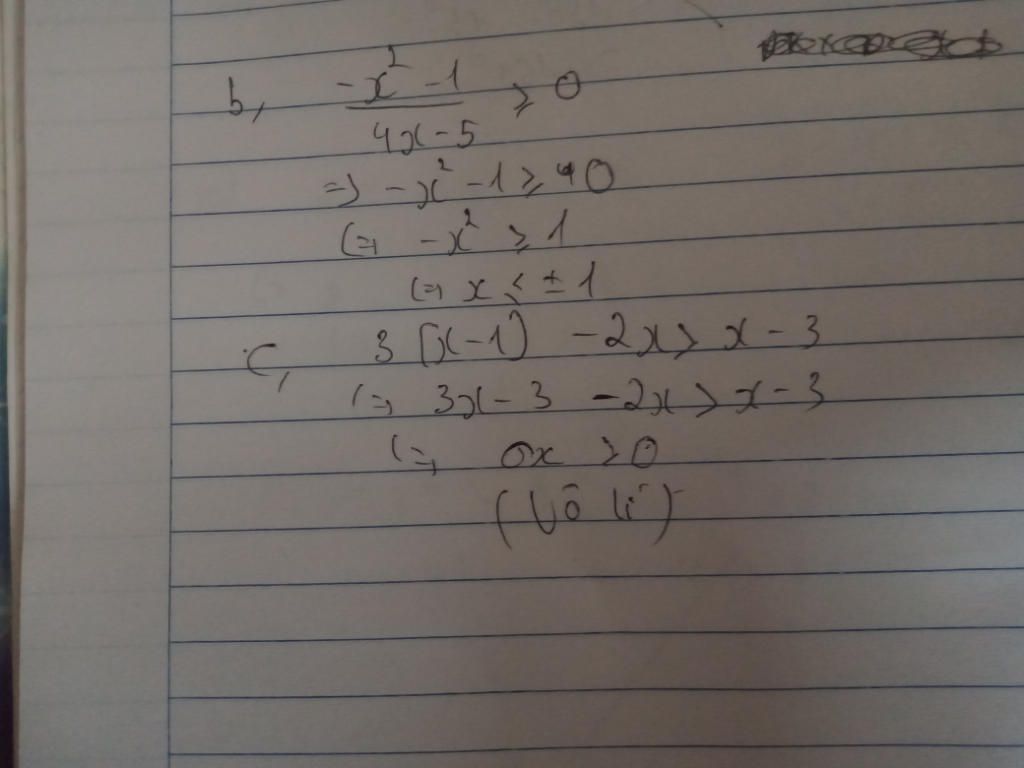 b, \frac{-x^2 - 1}{4x - 5} ≥ 0
=> -x² - 1 ≥ 0
<=> -x² ≥ 1
<=> x ≤ ± 1
c, 3(x-1) - 2x > x - 3
<=> 3x - 3 - 2x > x - 3
<=> 0x > 0
(Vô lí)